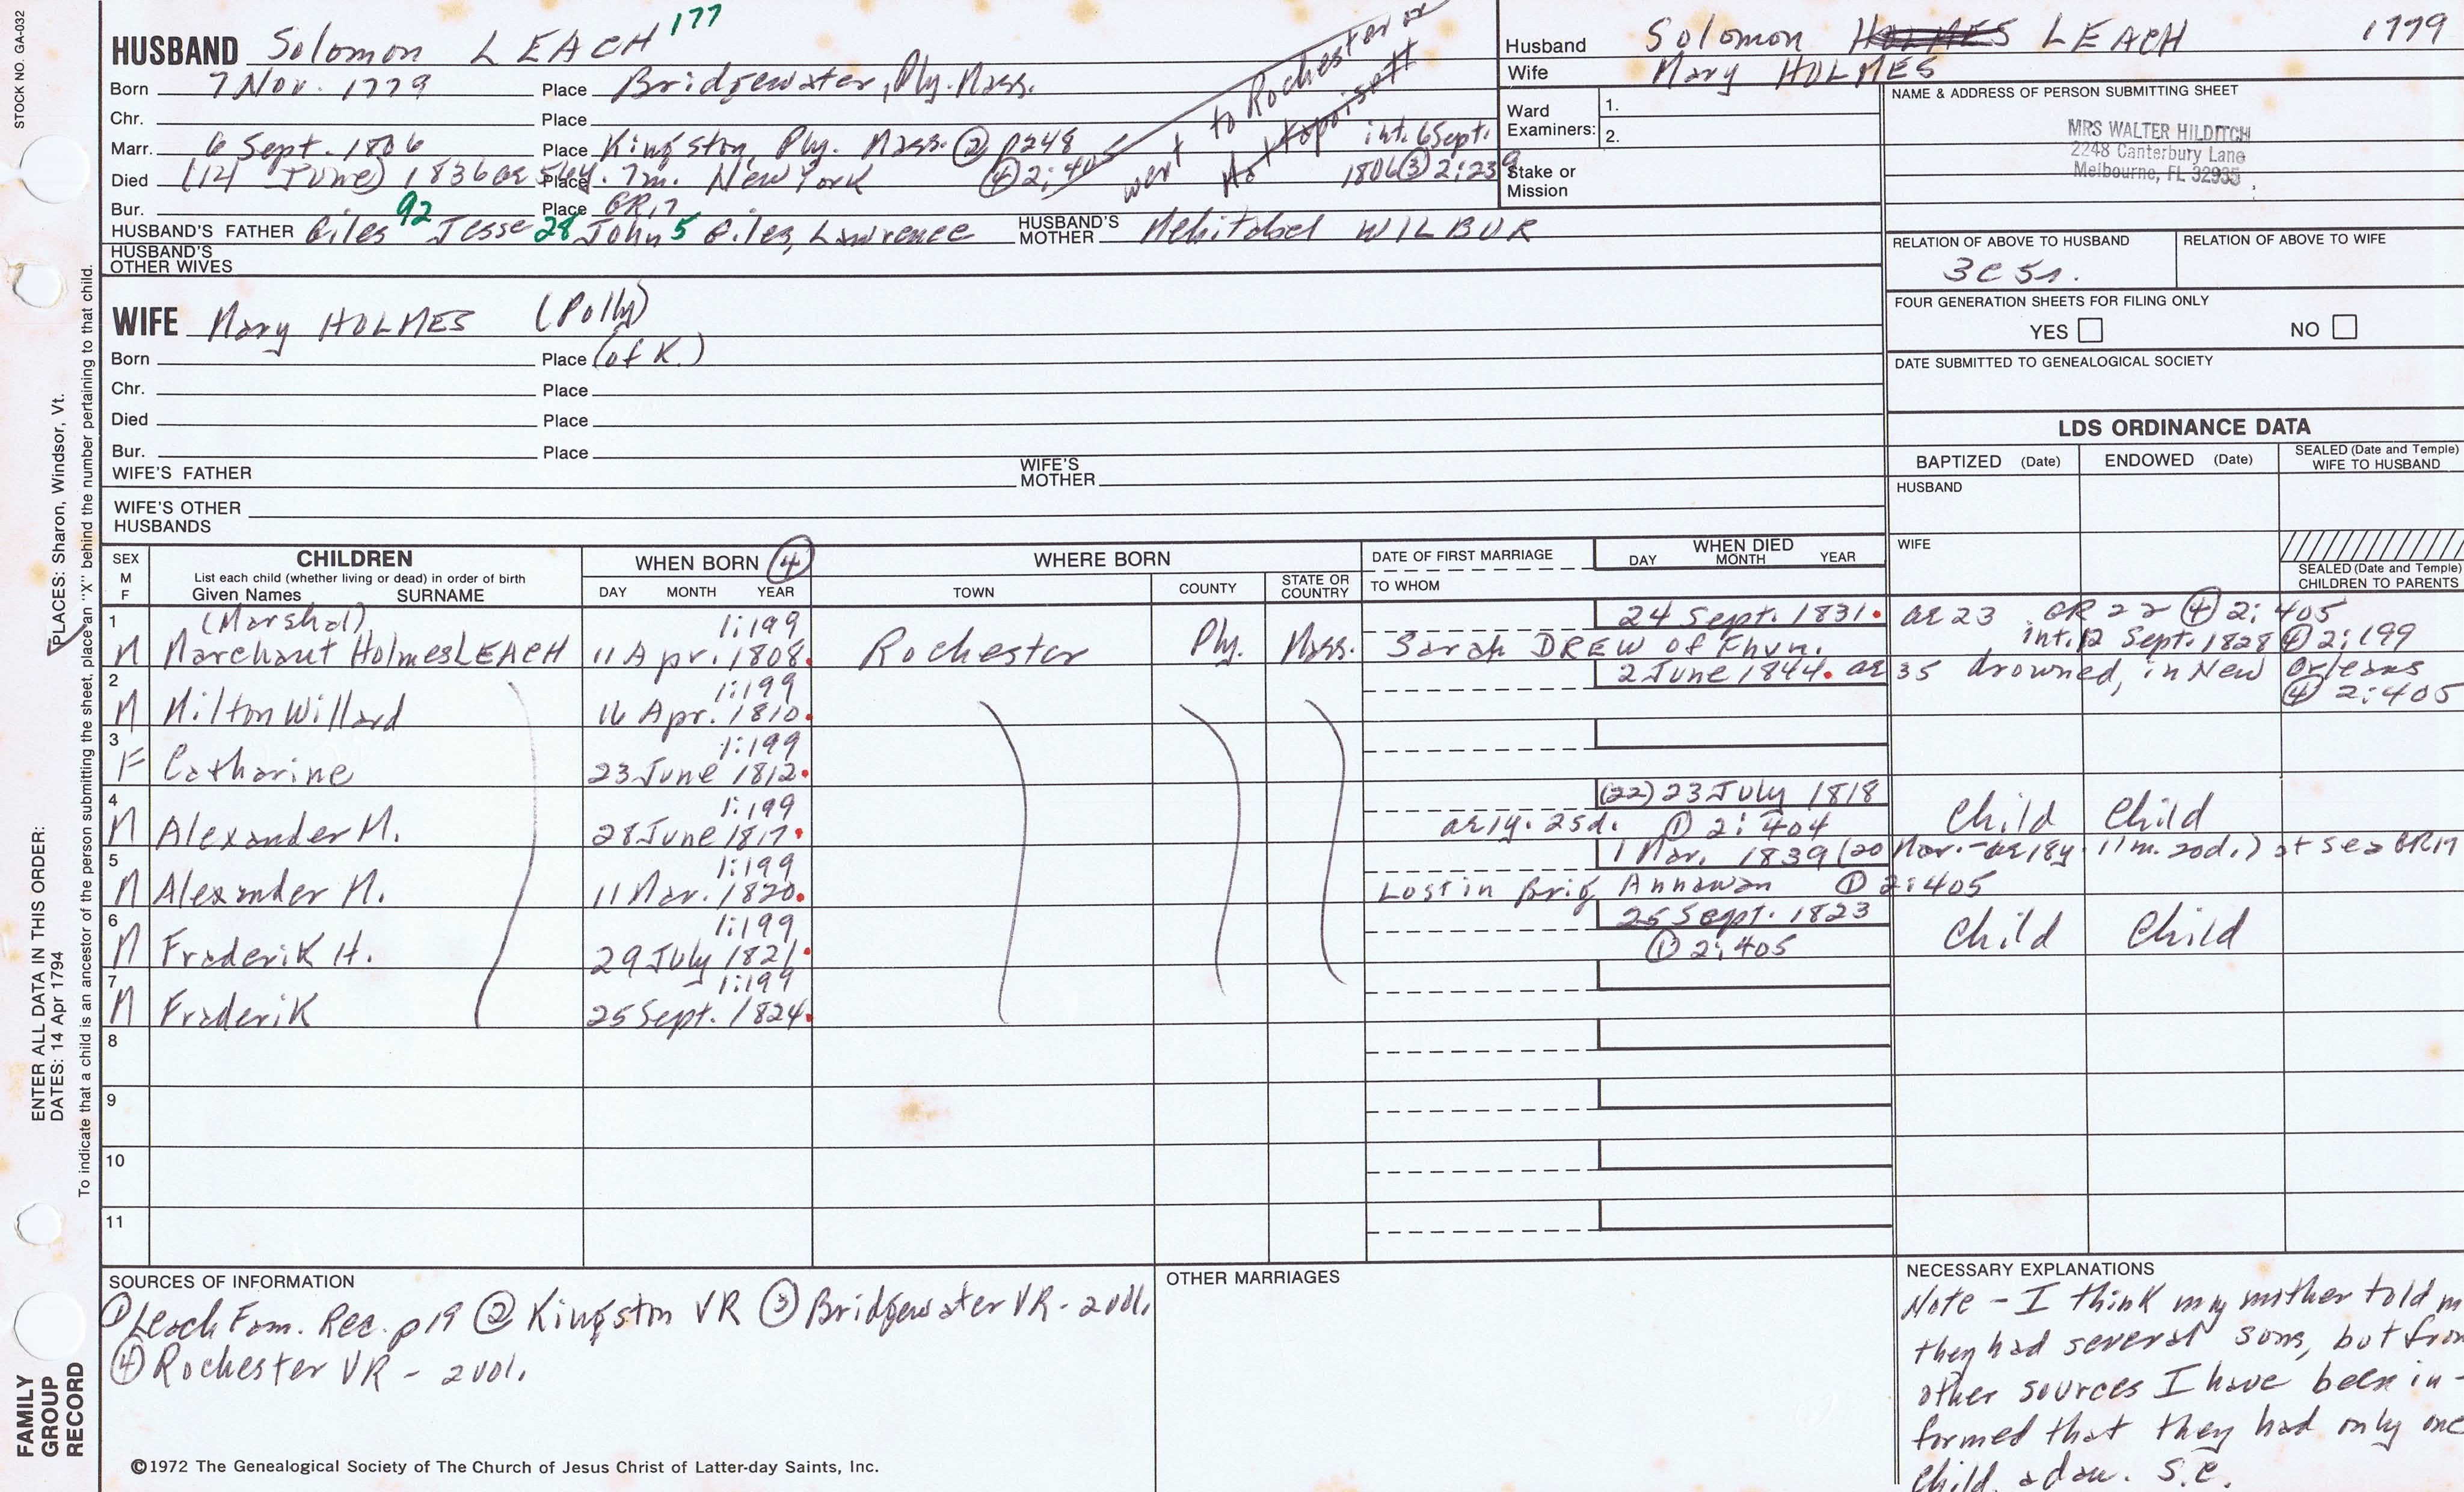 STOCK NO. GA-032
HUSBAND Solomon LEACH 177
Born 7 Nov. 1779 Place Bridgewater, Ply. Mass.
Chr. Place
Marr. 6 Sept. 1806 Place Kingston, Ply. Mass. ② p248
int. 6 Sept. 1806 ③ 2:239
Died (12) (June) 1836 ae 56y. 7m. Place New York ④ 2:405
went to Rochester or Mattapoisett
Bur. Place GR17
HUSBAND'S FATHER Giles 92 Jesse 28 John 5 Giles, Lawrence HUSBAND'S MOTHER Mehitabel WILBUR
HUSBAND'S OTHER WIVES
Husband Solomon HOLMES LEACH 1779
Wife Mary HOLMES
Ward Examiners: 1.
2.
Stake or Mission
NAME & ADDRESS OF PERSON SUBMITTING SHEET
MRS WALTER HILDITCH
2248 Canterbury Lane
Melbourne, FL 32935
RELATION OF ABOVE TO HUSBAND RELATION OF ABOVE TO WIFE
3C 5r.
FOUR GENERATION SHEETS FOR FILING ONLY
YES NO
DATE SUBMITTED TO GENEALOGICAL SOCIETY
WIFE Mary HOLMES (Polly)
Born Place (of K.)
Chr. Place
Died Place
Bur. Place
WIFE'S FATHER WIFE'S MOTHER
WIFE'S OTHER HUSBANDS
LDS ORDINANCE DATA
BAPTIZED (Date) ENDOWED (Date) SEALED (Date and Temple) WIFE TO HUSBAND
HUSBAND
WIFE
SEALED (Date and Temple) CHILDREN TO PARENTS
SEX M F CHILDREN WHEN BORN ④ WHERE BORN DATE OF FIRST MARRIAGE WHEN DIED
List each child (whether living or dead) in order of birth DAY MONTH YEAR
Given Names SURNAME DAY MONTH YEAR TOWN COUNTY STATE OR COUNTRY TO WHOM
1 (Marshal) 1:199 24 Sept. 1831. ae 23 GR 22 ④ 2:405
M Marchant Holmes LEACH 11 Apr. 1808. Rochester Ply. Mass. Sarah DREW of Fhvn. int. 12 Sept. 1828 ④ 2:199
2 1:199 2 June 1844. ae 35 drowned, in New Orleans
M Milton Willard 16 Apr. 1810. ④ 2:405
3 1:199
F Catharine 23 June 1812.
4 1:199 (22) 23 July 1818
M Alexander M. 28 June 1817. ae 1y. 25d. ① 2:404 Child Child
5 1:199 1 Mar. 1839 (20 Mar. - ae 18y. 11m. 20d.) at sea GR17
M Alexander M. 11 Mar. 1820. Lost in Brig Annawan ① 2:405
6 1:199 25 Sept. 1823
M Frederik H. 29 July 1821. ① 2:405 Child Child
7 1:199
M Frederik 25 Sept. 1824.
8
9
10
11
SOURCES OF INFORMATION
① Leach Fam. Rec. p19 ② Kingston VR ③ Bridgewater VR - 2 vol.
④ Rochester VR - 2 vol.
OTHER MARRIAGES
NECESSARY EXPLANATIONS
Note - I think my mother told m
they had several sons, but from
other sources I have been in-
formed that they had only one
child, a dau. S.C.
©1972 The Genealogical Society of The Church of Jesus Christ of Latter-day Saints, Inc.
FAMILY GROUP RECORD
ENTER ALL DATA IN THIS ORDER:
DATES: 14 Apr 1794
PLACES: Sharon, Windsor, Vt.
To indicate that a child is an ancestor of the person submitting the sheet, place an "X" behind the number pertaining to that child.